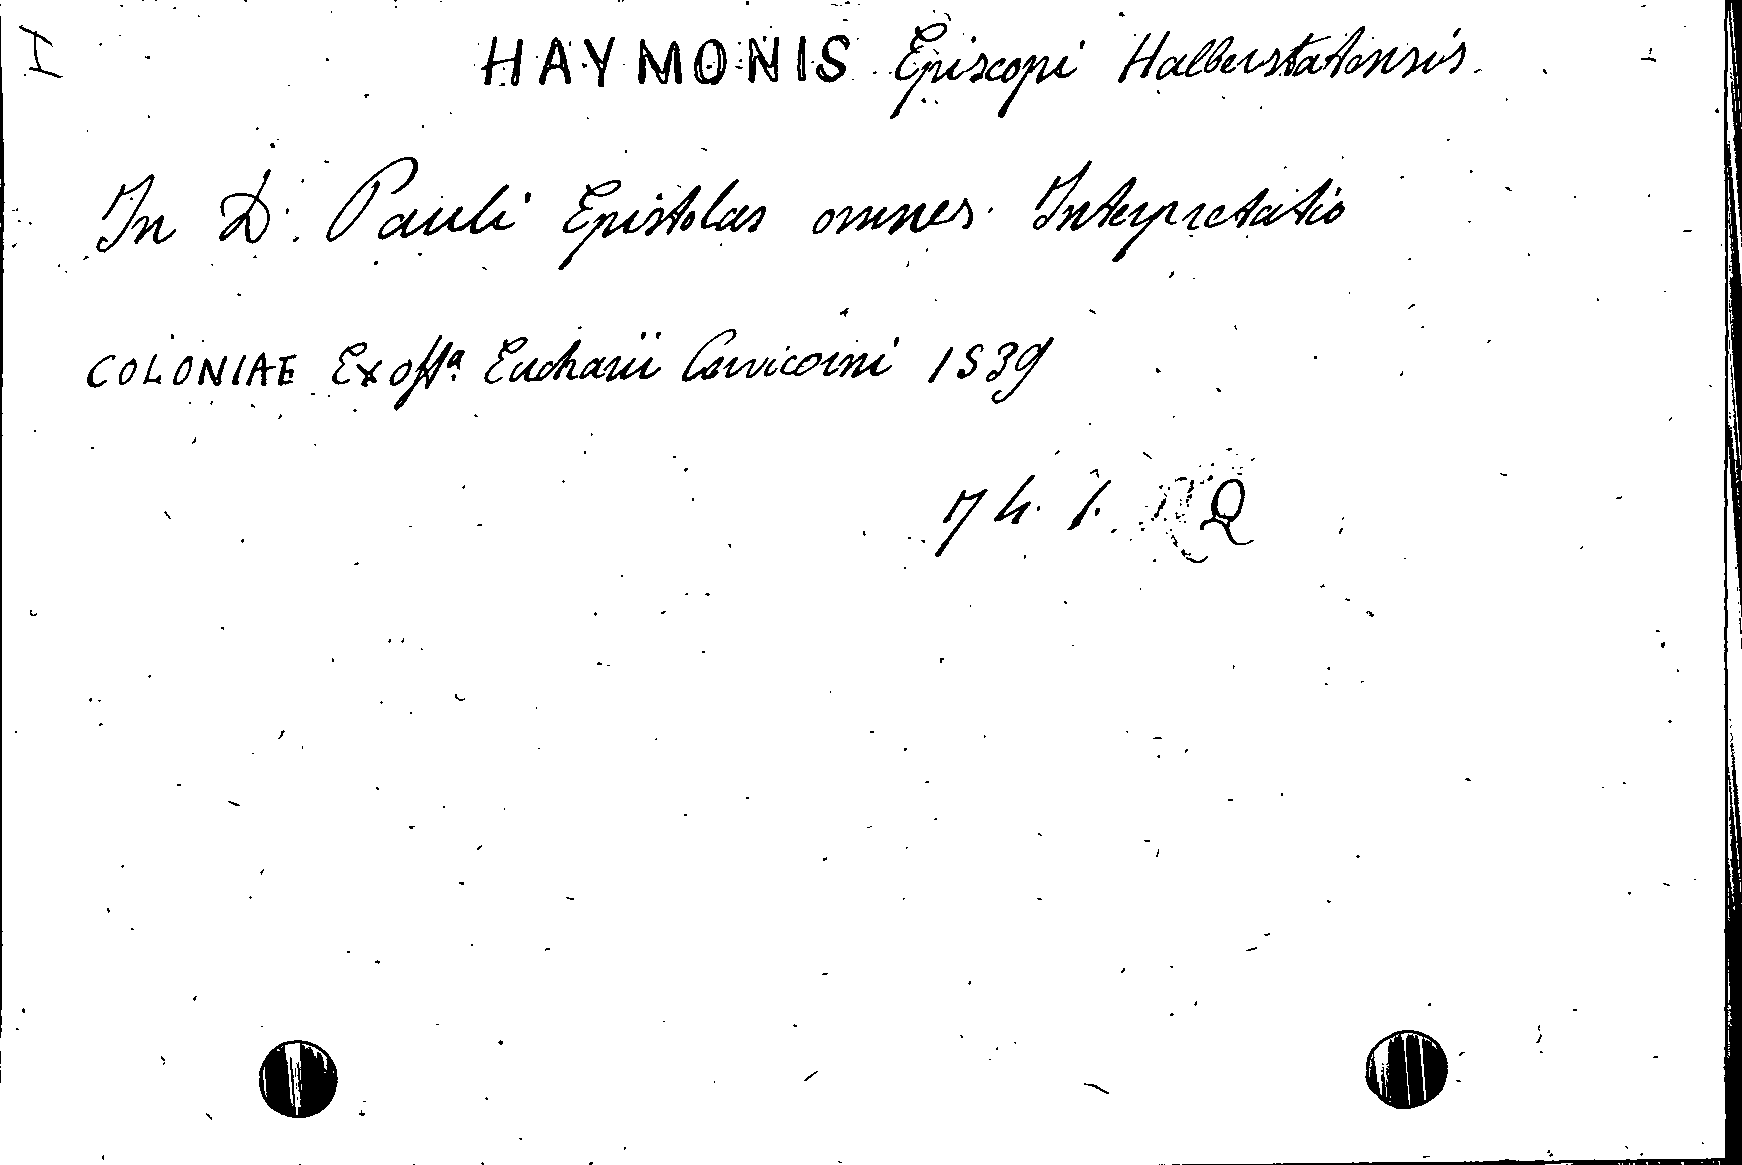 HAYMONIS Episcopi Halberstatensis
In D. Pauli Epistolas omnes Interpretatio
COLONIAE Ex offª Eucharii Cervicorni 1539
74. 1. Q